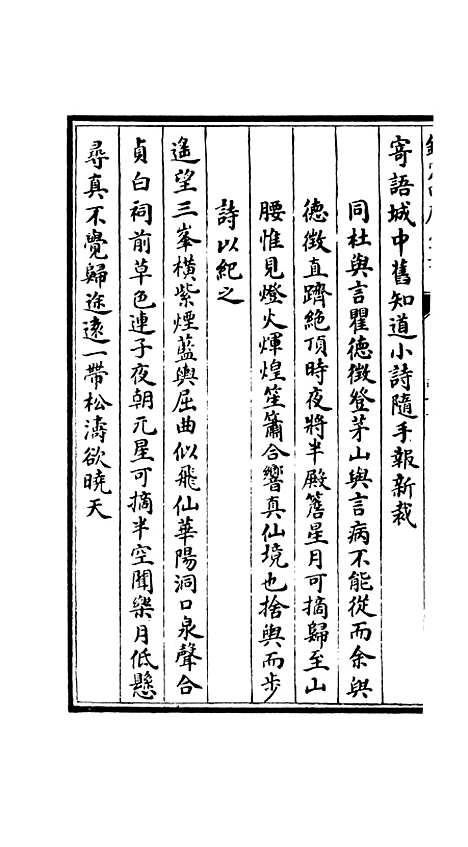 寄語城中舊知道小詩隨手報新裁
同杜與言瞿德徵登茅山與言病不能從而余與
德徵直躋絶頂時夜將半殿簷星月可摘歸至山
腰惟見燈火煇煌笙簫合響真仙境也捨輿而步
詩以紀之
遥望三峯横紫煙藍輿屈曲似飛仙華陽洞口泉聲合
貞白祠前草色連子夜朝元星可摘半空聞樂月低懸
尋真不覺歸途遠一帶松濤欲曉天